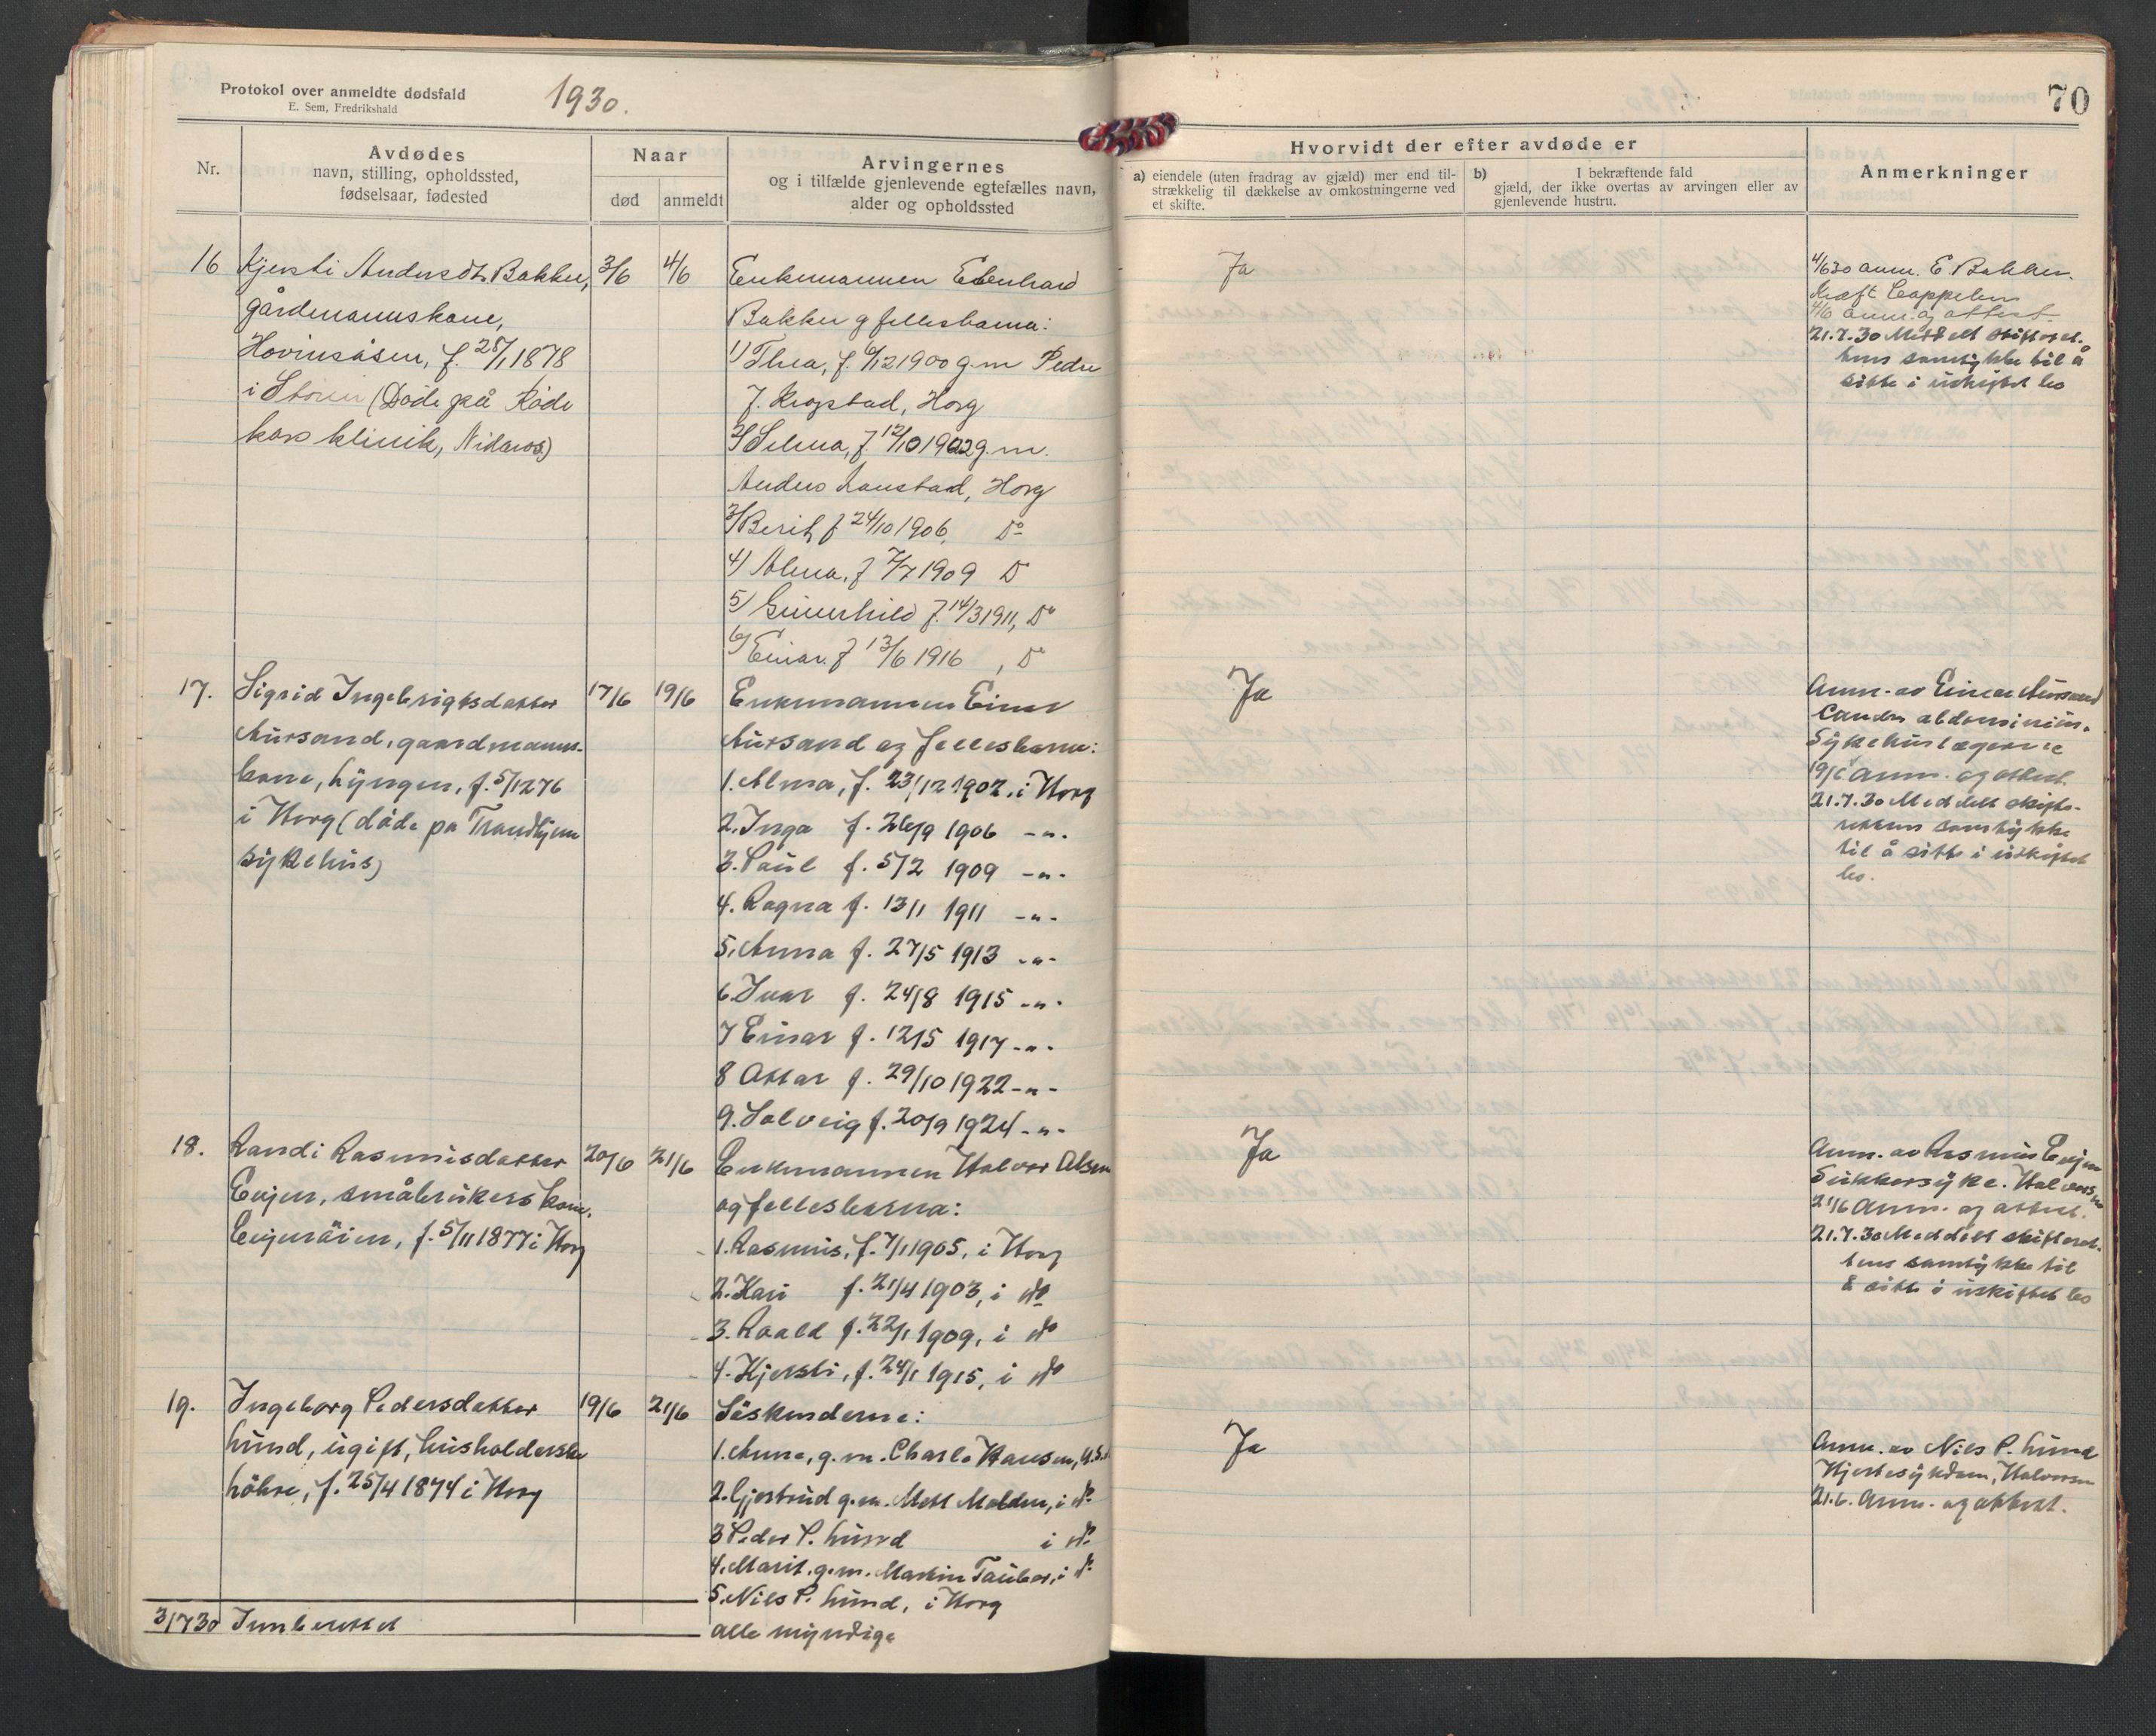 Protokol over anmeldte dødsfald
E. Sem, Fredrikshald
1930.
70
Nr.
Avdødes
navn, stilling, opholdssted,
fødselsaar, fødested
Naar
død
anmeldt
Arvingernes
og i tilfælde gjenlevende egtefælles navn,
alder og opholdssted
Hvorvidt der efter avdøde er
a) eiendele (uten fradrag av gjæld) mer end til-
strækkelig til dækkelse av omkostningerne ved
et skifte.
b) I bekræftende fald
gjæld, der ikke overtas av arvingen eller av
gjenlevende hustru.
Anmerkninger
16 Kjersti Andersdt. Bakken, 3/6 4/6
gårdmannskone,
Hovinsåsen, f. 28/1 1878
i Støren (Døde på Røde
kors klinik, Nidaros)
Enkemannen Edenhard
Bakken og fellesbarna:
1) Thea, f. 6/12 1900 g.m Peder
J. Krogstad, Horg
2) Selma, f. 12/10 1902 g.m.
Anders Ranstad, Horg
3) Berit, f 24/10 1906, Do
4) Alma, f 7/7 1909 Do
5) Gunnhild f. 14/3 1911, Do
6) Einar f 13/6 1916, Do
Ja
4/6 30 anm. E. Bakken.
Kræft Cappelen
4/6 anm. og attest.
21.7.30 Meddelt skifteret-
tens samtykke til å
sitte i uskiftet bo
17. Sigrid Ingebrigtsdatter 17/6 19/6
Aursand, gaardmanns-
kone, Lyngen, f. 5/12 76
i Horg (døde på Trondhjem
sykehus)
Enkemannen Einar
Aursand og fellesbarna:
1. Alma, f. 23/12 1902, i Horg
2. Inga f. 26/9 1906 -"-
3. Paul f. 5/2 1909 -"-
4. Ragna f. 13/1 1911 -"-
5. Anna f. 27/5 1913 -"-
6. Ivar f. 24/8 1915 -"-
7 Einar f. 12/5 1917 -"-
8 Ottar f. 29/10 1922 -"-
9. Solveig f. 20/9 1924 -"-
Ja
Anm. av Einar Aursand
Cancer abdominum.
Sykehuslægene
19/6 Anm. og attest.
21.7.30 Meddelt skifte-
rettens samtykke
til å sitte i uskiftet
bo.
18. Randi Rasmusdatter 20/6 21/6
Evjen, småbrukers kone,
Evjenøien, f. 5/11 1877 i Horg
Enkemannen Halvor Olsen
og fellesbarna:
1. Rasmus, f. 7/1 1905, i Horg
2. Kari f. 21/4 1903, i do
3. Roald f. 22/1 1909, i do
4. Kjersti, f. 24/1 1915, i do
Ja
Anm. av Rasmus Evjen
Sukkersyke. Halvorsen
21/6 Anm. og attest.
21.7.30 Meddelt skifteret-
tens samtykke til
å sitte i uskiftet bo
19. Ingeborg Pedersdatter 19/6 21/6
Lund, ugift, husholderske
Løhre, f. 25/4 1874 i Horg
Søskenderne:
1. Anne, g.m. Charls Hansen, U.S.
2. Gjertrud g.m. Mett Molden, i do
3 Peder P. Lund i do
4. Marit, g.m. Martin Tauber, i do
5. Nils P. Lund, i Horg
alle myndige
Ja
Anm. av Nils P. Lund
Hjertesykdom, Halvorsen
21.6. Anm. og attest.
3/7 30 Innberettet